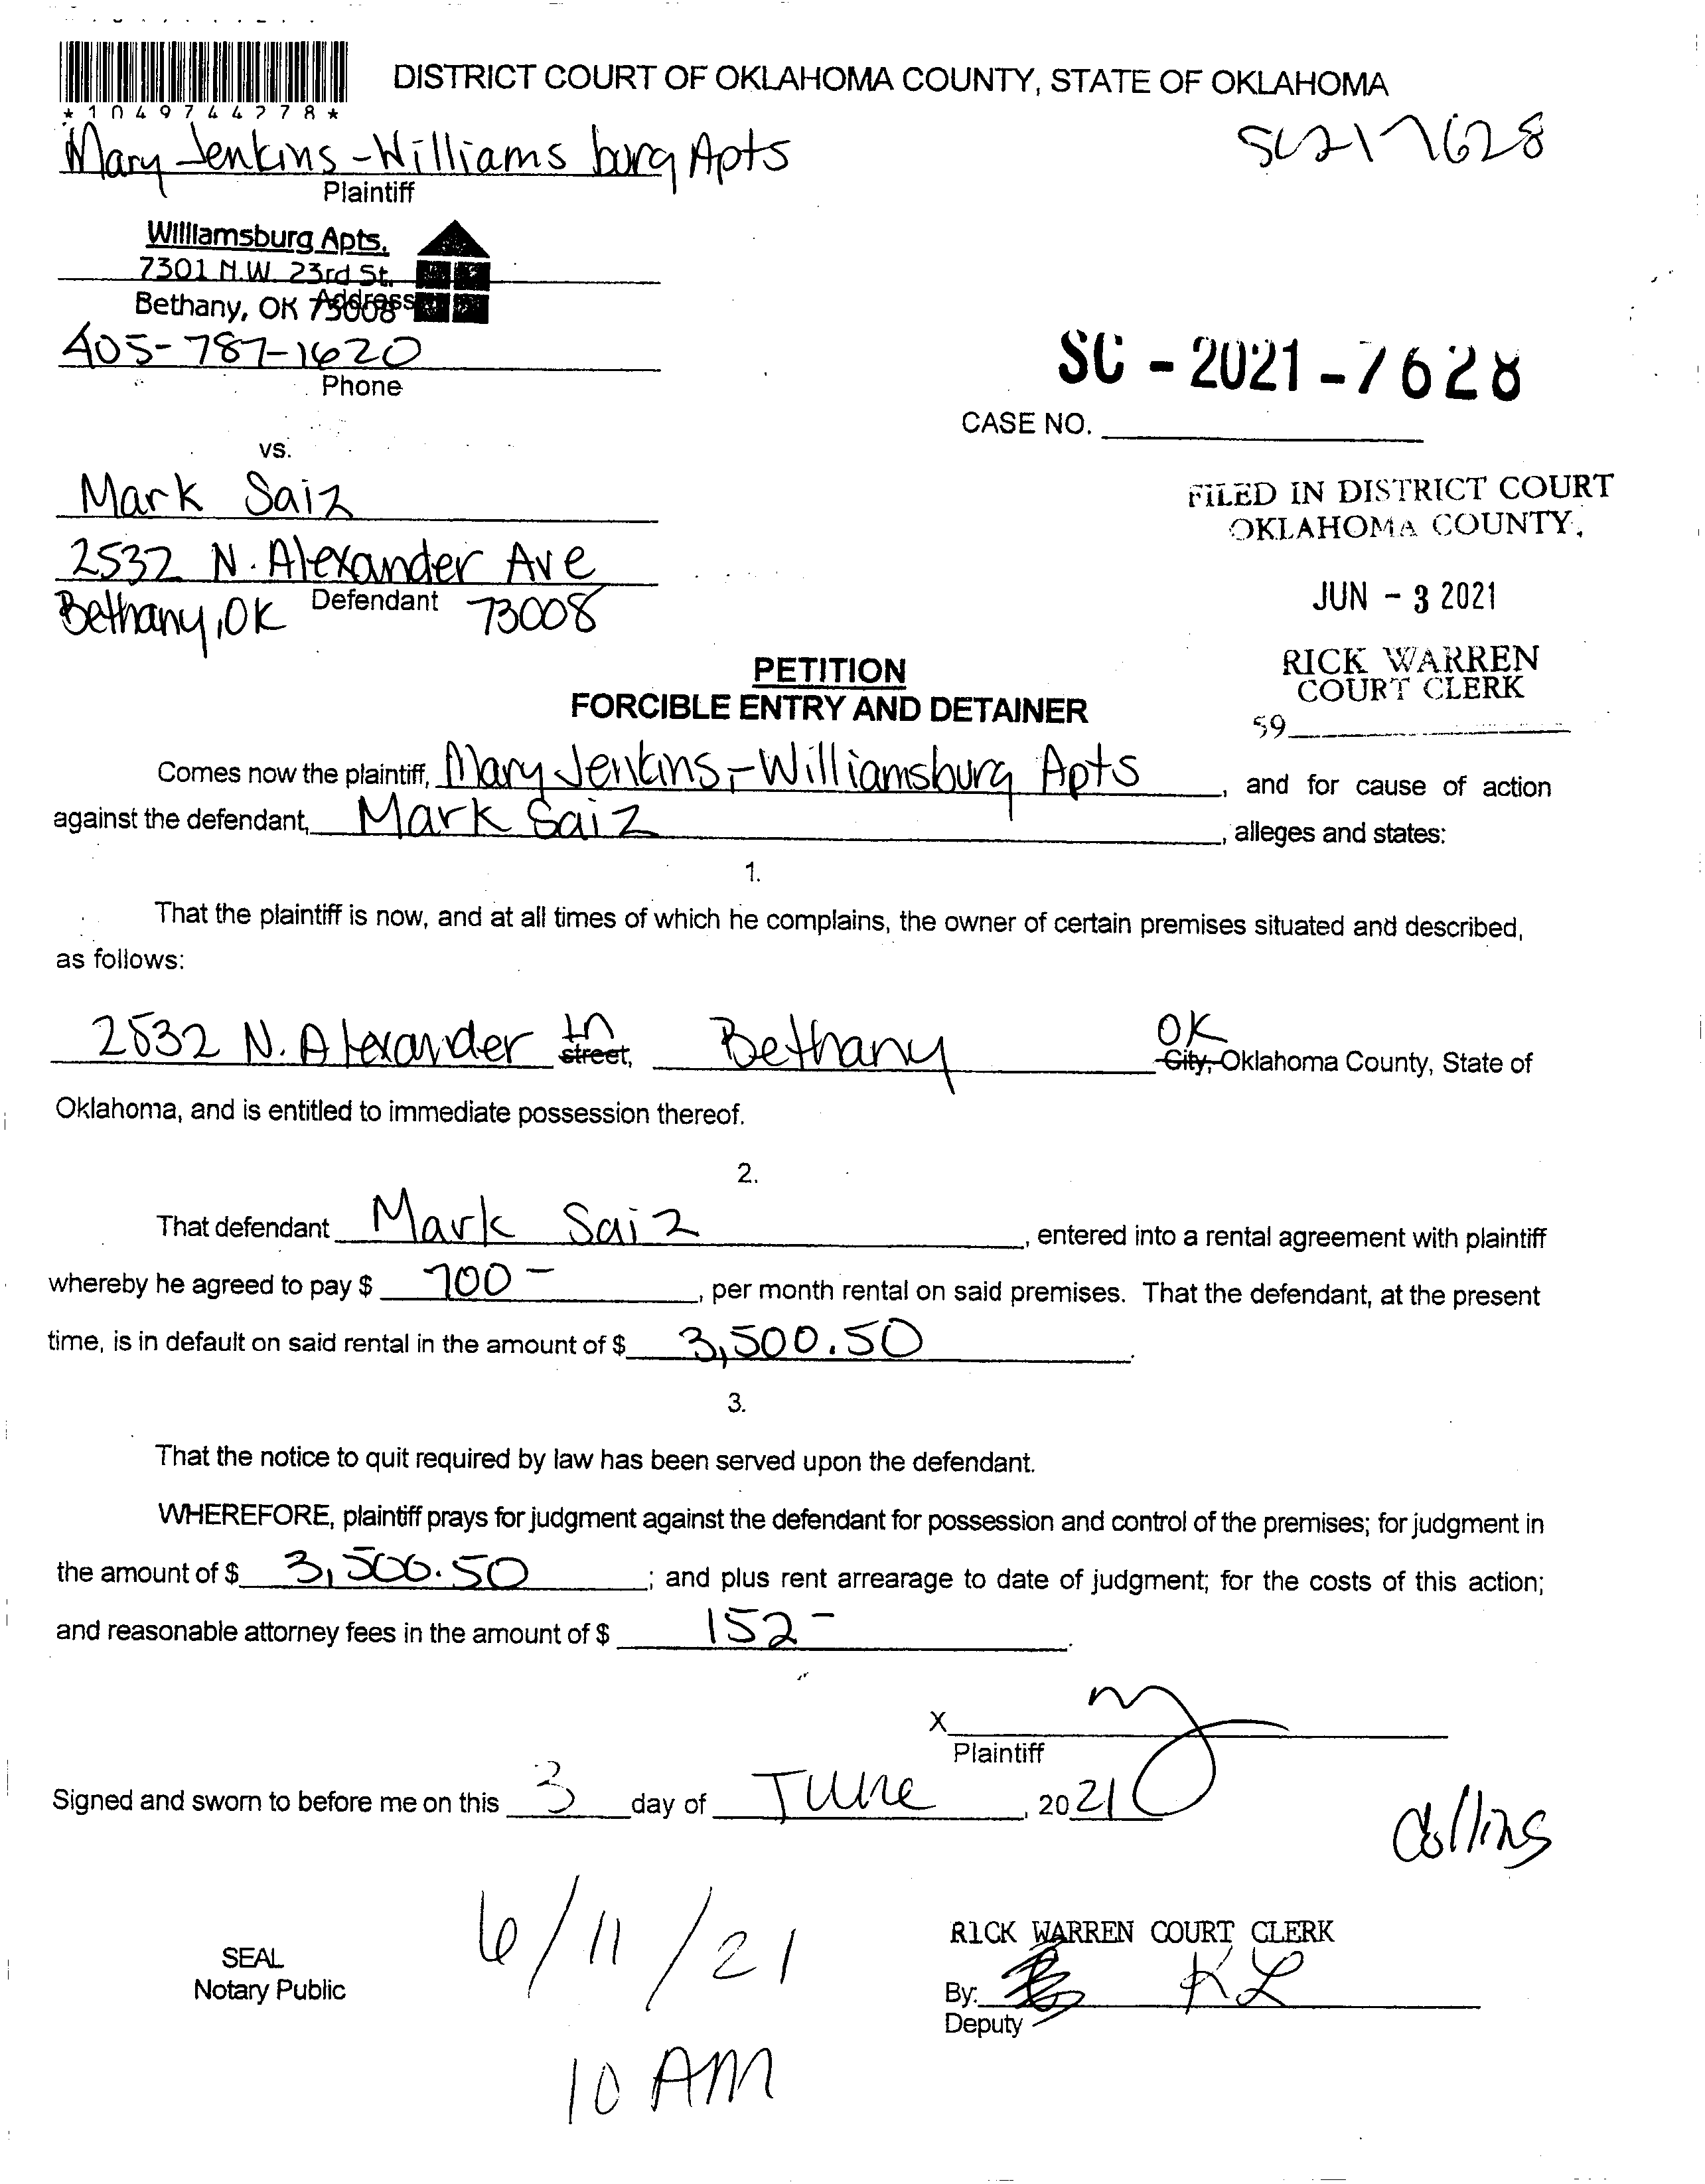 DISTRICT COURT OF OKLAHOMA COUNTY, STATE OF OKLAHOMA
*1049744278*
Mary Jenkins-Williamsburg Apts
SC217628
Plaintiff
Williamsburg Apts.
7301 N.W. 23rd St.
Bethany, OK 73008
Address
405-787-1620
Phone
SC - 2021 - 7628
CASE NO.
vs.
Mark Saiz
FILED IN DISTRICT COURT
OKLAHOMA COUNTY.
2532 N. Alexander Ave
JUN - 3 2021
Defendant
Bethany, OK 73008
RICK WARREN
COURT CLERK
59
PETITION
FORCIBLE ENTRY AND DETAINER
Comes now the plaintiff, Mary Jenkins,-Williamsburg Apts, and for cause of action
against the defendant, Mark Saiz, alleges and states:
1.
That the plaintiff is now, and at all times of which he complains, the owner of certain premises situated and described,
as follows:
2532 N. Alexander Ln street, Bethany OK City, Oklahoma County, State of
Oklahoma, and is entitled to immediate possession thereof.
2.
That defendant Mark Saiz, entered into a rental agreement with plaintiff
whereby he agreed to pay $ 700-, per month rental on said premises. That the defendant, at the present
time, is in default on said rental in the amount of $ 3,500.50.
3.
That the notice to quit required by law has been served upon the defendant.
WHEREFORE, plaintiff prays for judgment against the defendant for possession and control of the premises; for judgment in
the amount of $ 3,500.50; and plus rent arrearage to date of judgment; for the costs of this action;
and reasonable attorney fees in the amount of $ 152-.
X
Plaintiff
Signed and sworn to before me on this 3 day of June, 2021
Collins
6/11/21
RICK WARREN COURT CLERK
SEAL
Notary Public
By: KL
Deputy
10 AM